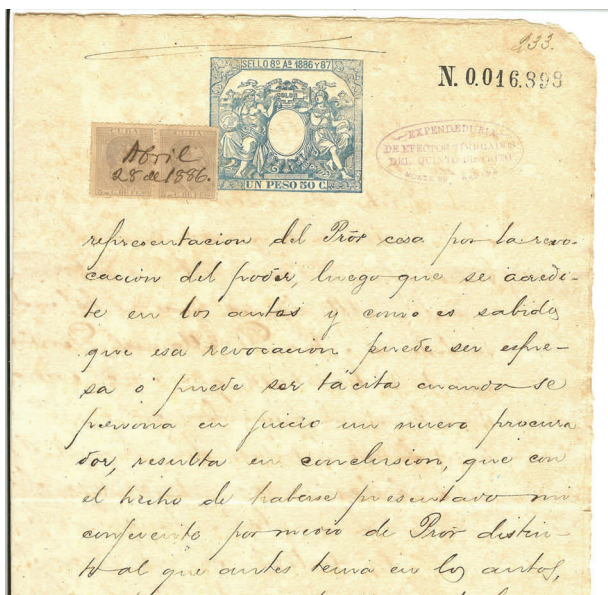 133.
SELLO 8º Aº 1886 Y 87
N. 0.016.898
CUBA CUBA
Abril
28 de 1886.
EXPENDEDURIA
DE EFECTOS TIMBRADOS
DEL QUINTO DISTRITO
UN PESO 50 C.
representacion del Pror cesa por la revo-
cacion del poder, luego que se acredi-
te en los autos y como es sabido
que esa revocacion puede ser espre-
sa ó puede ser tácita cuando se
persona en juicio un nuevo procura
dor, resulta en conclusion, que con
el hecho de haberse presentado mi
conferente por medio de Pror distin-
to al que antes tenia en los autos,